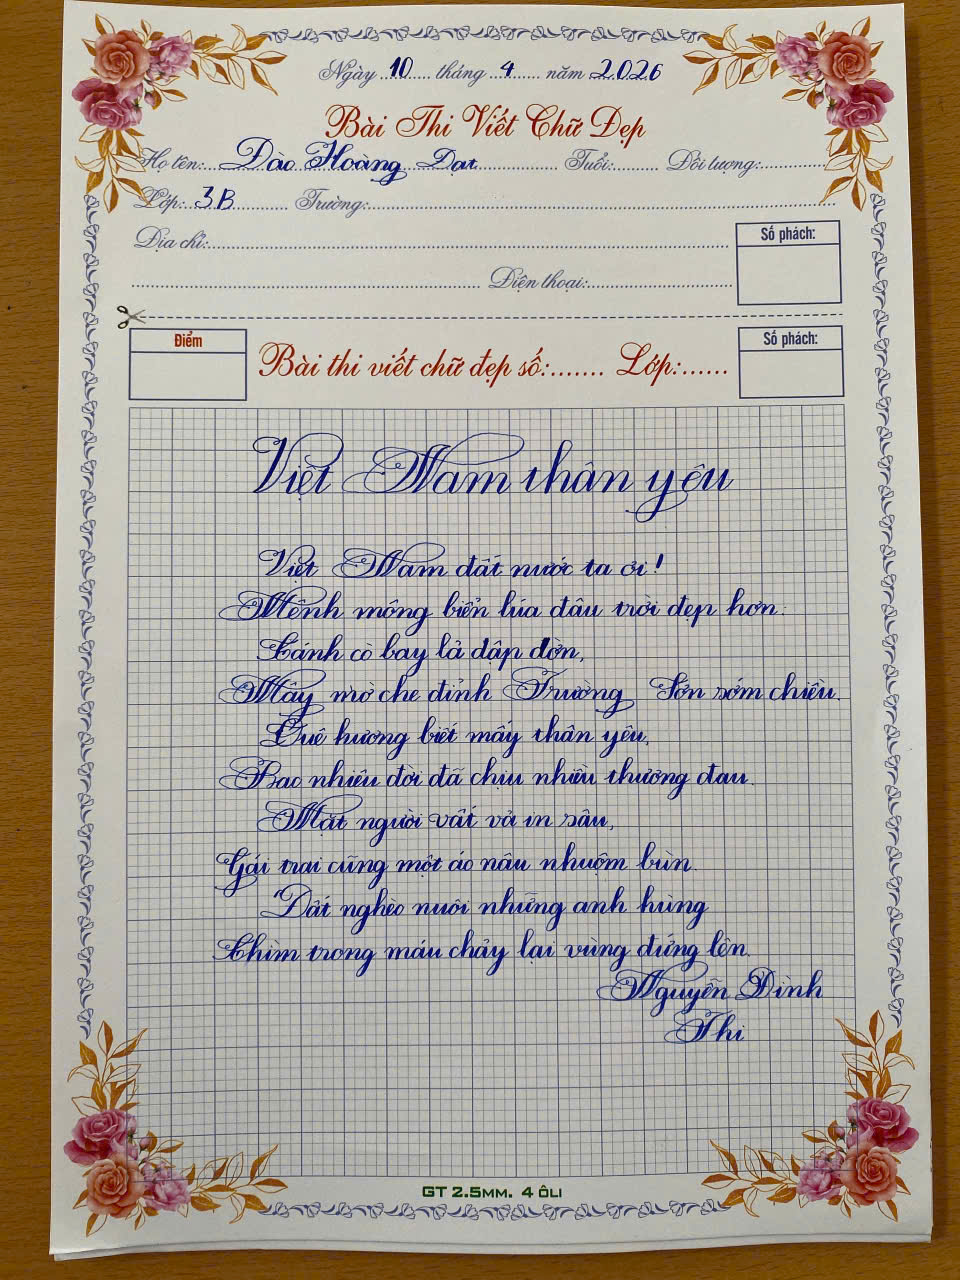 Ngày 10 tháng 4 năm 2026
Bài Thi Viết Chữ Đẹp
Họ tên: Đào Hoàng Đạt Tuổi: Đối tượng:
Lớp: 3B Trường:
Địa chỉ:
Điện thoại:
Số phách:
Điểm
Bài thi viết chữ đẹp số: Lớp:
Số phách:
Việt Nam thân yêu
Việt Nam đất nước ta ơi!
Mênh mông biển lúa đâu trời đẹp hơn.
Cánh cò bay lả dập dờn,
Mây mờ che đỉnh Trường Sơn sớm chiều.
Quê hương biết mấy thân yêu,
Bao nhiêu đời đã chịu nhiều thương đau.
Mặt người vất vả in sâu,
Gái trai cũng một áo nâu nhuộm bùn.
Đất nghèo nuôi những anh hùng
Chìm trong máu chảy lại vùng đứng lên.
Nguyễn Đình
Thi
GT 2.5MM. 4 ÔLI